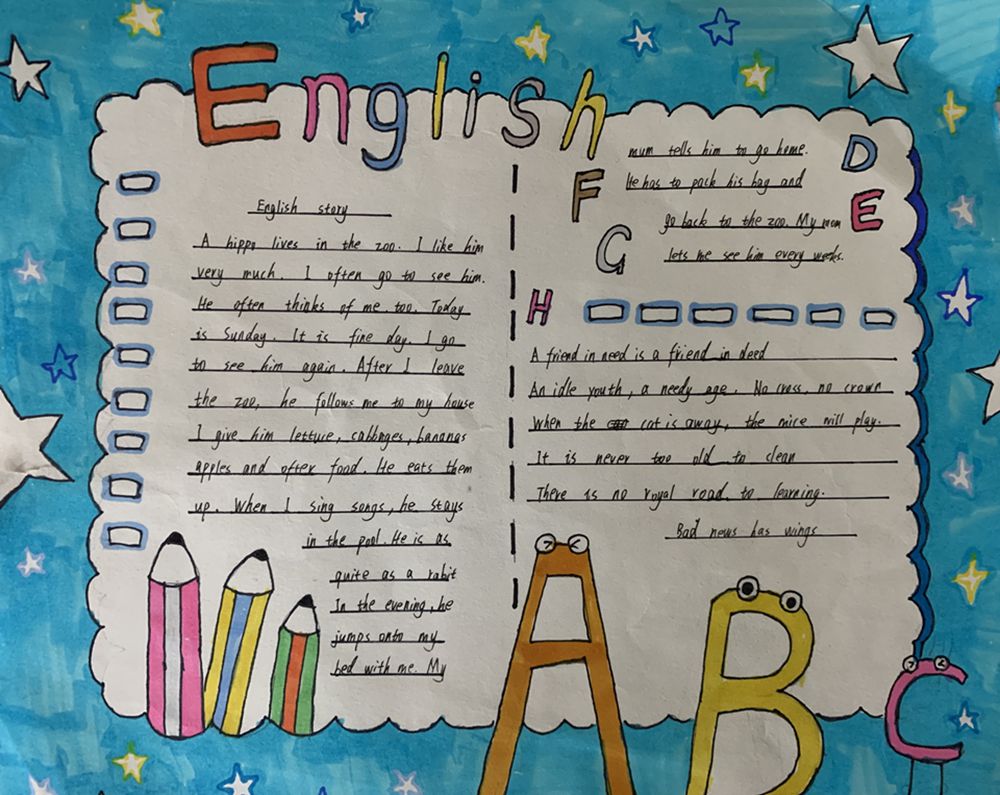 English
English story
A hippo lives in the zoo. I like him
very much. I often go to see him.
He often thinks of me too. Today
is Sunday. It is fine day. I go
to see him again. After I leave
the zoo, he follows me to my house
I give him lettuie, cabbnges, bananas
apples and ofter food. He eats them
up. When I sing songs, he stays
in the pool. He is as
quite as a rabit
In the evening, he
jumps onto my
bed with me. My
mum tells him to go home.
He has to pack his bag and
go back to the zoo. My mum
lets me see him every weeks.
D
E
F
G
H
A friend in need is a friend in deed
An idle youth, a needy age. No cross, no crown
When the cat is away, the mice will play.
It is never too old to clean
There is no royal road to learning.
Bad news has wings
A
B
C